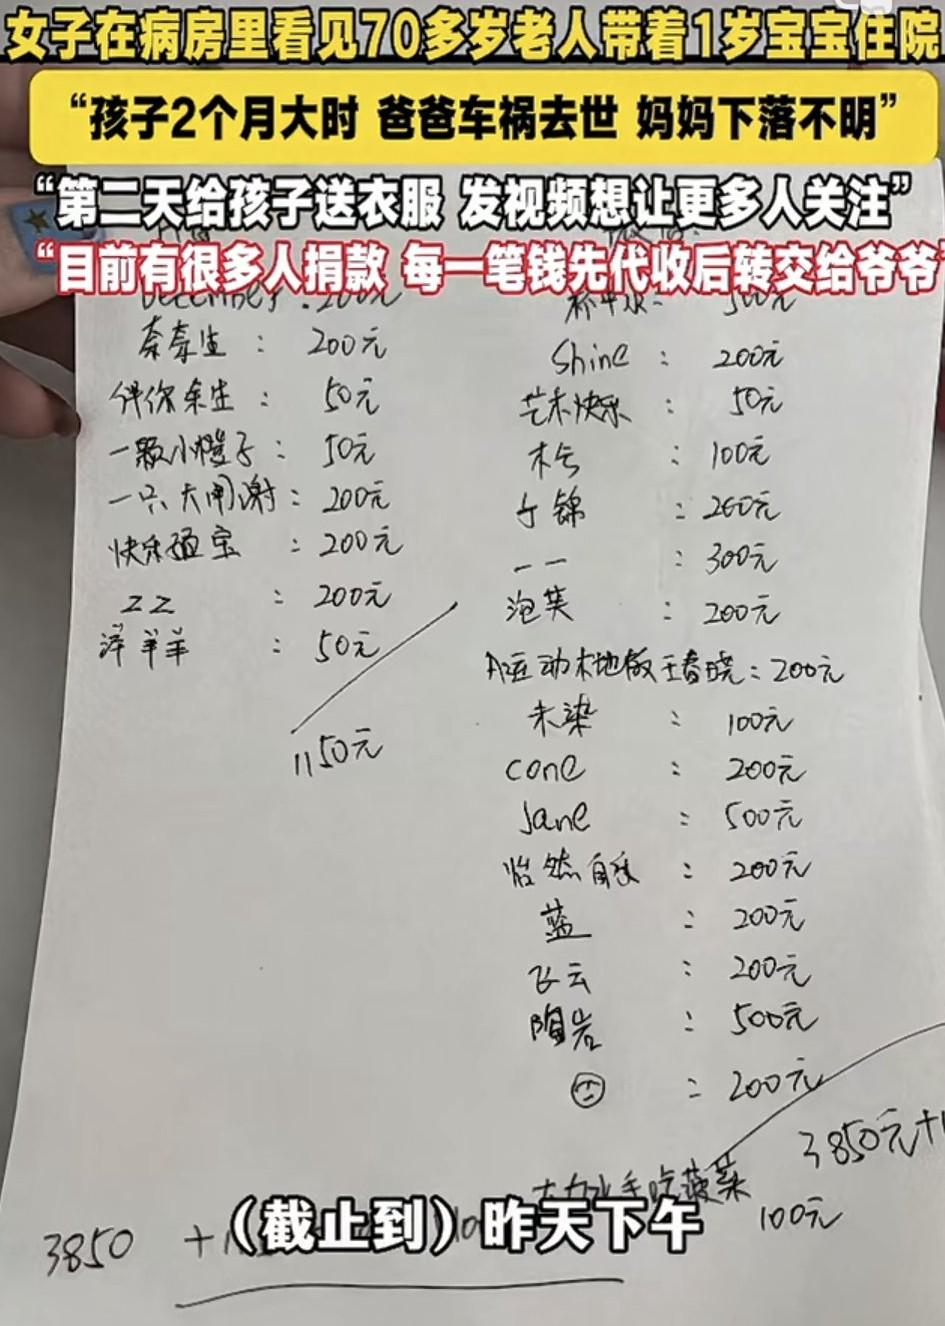 女子在病房里看见70多岁老人带着1岁宝宝住院
“孩子2个月大时 爸爸车祸去世 妈妈下落不明”
“第二天给孩子送衣服 发视频想让更多人关注”
“目前有很多人捐款 每一笔钱先代收后转交给爷爷”
200元
奈奈生 : 200元
伴你余生 : 50元
一颗小橙子 : 50元
一只大闸谢 : 200元
快乐 宝 : 200元
ZZ : 200元
洋羊羊 : 50元
1150元
500元
Shine : 200元
艺禾快乐 : 50元
木兮 : 100元
锦 : 200元
一一 : 300元
泡芙 : 200元
A运动木地板王春晓 : 200元
未染 : 100元
cone : 200元
Jane : 500元
怡然自乐 : 200元
蓝 : 200元
飞云 : 200元
陶岩 : 500元
: 200元
3850元+1
大力水手吃菠菜
100元
3850 +
（截止到）昨天下午